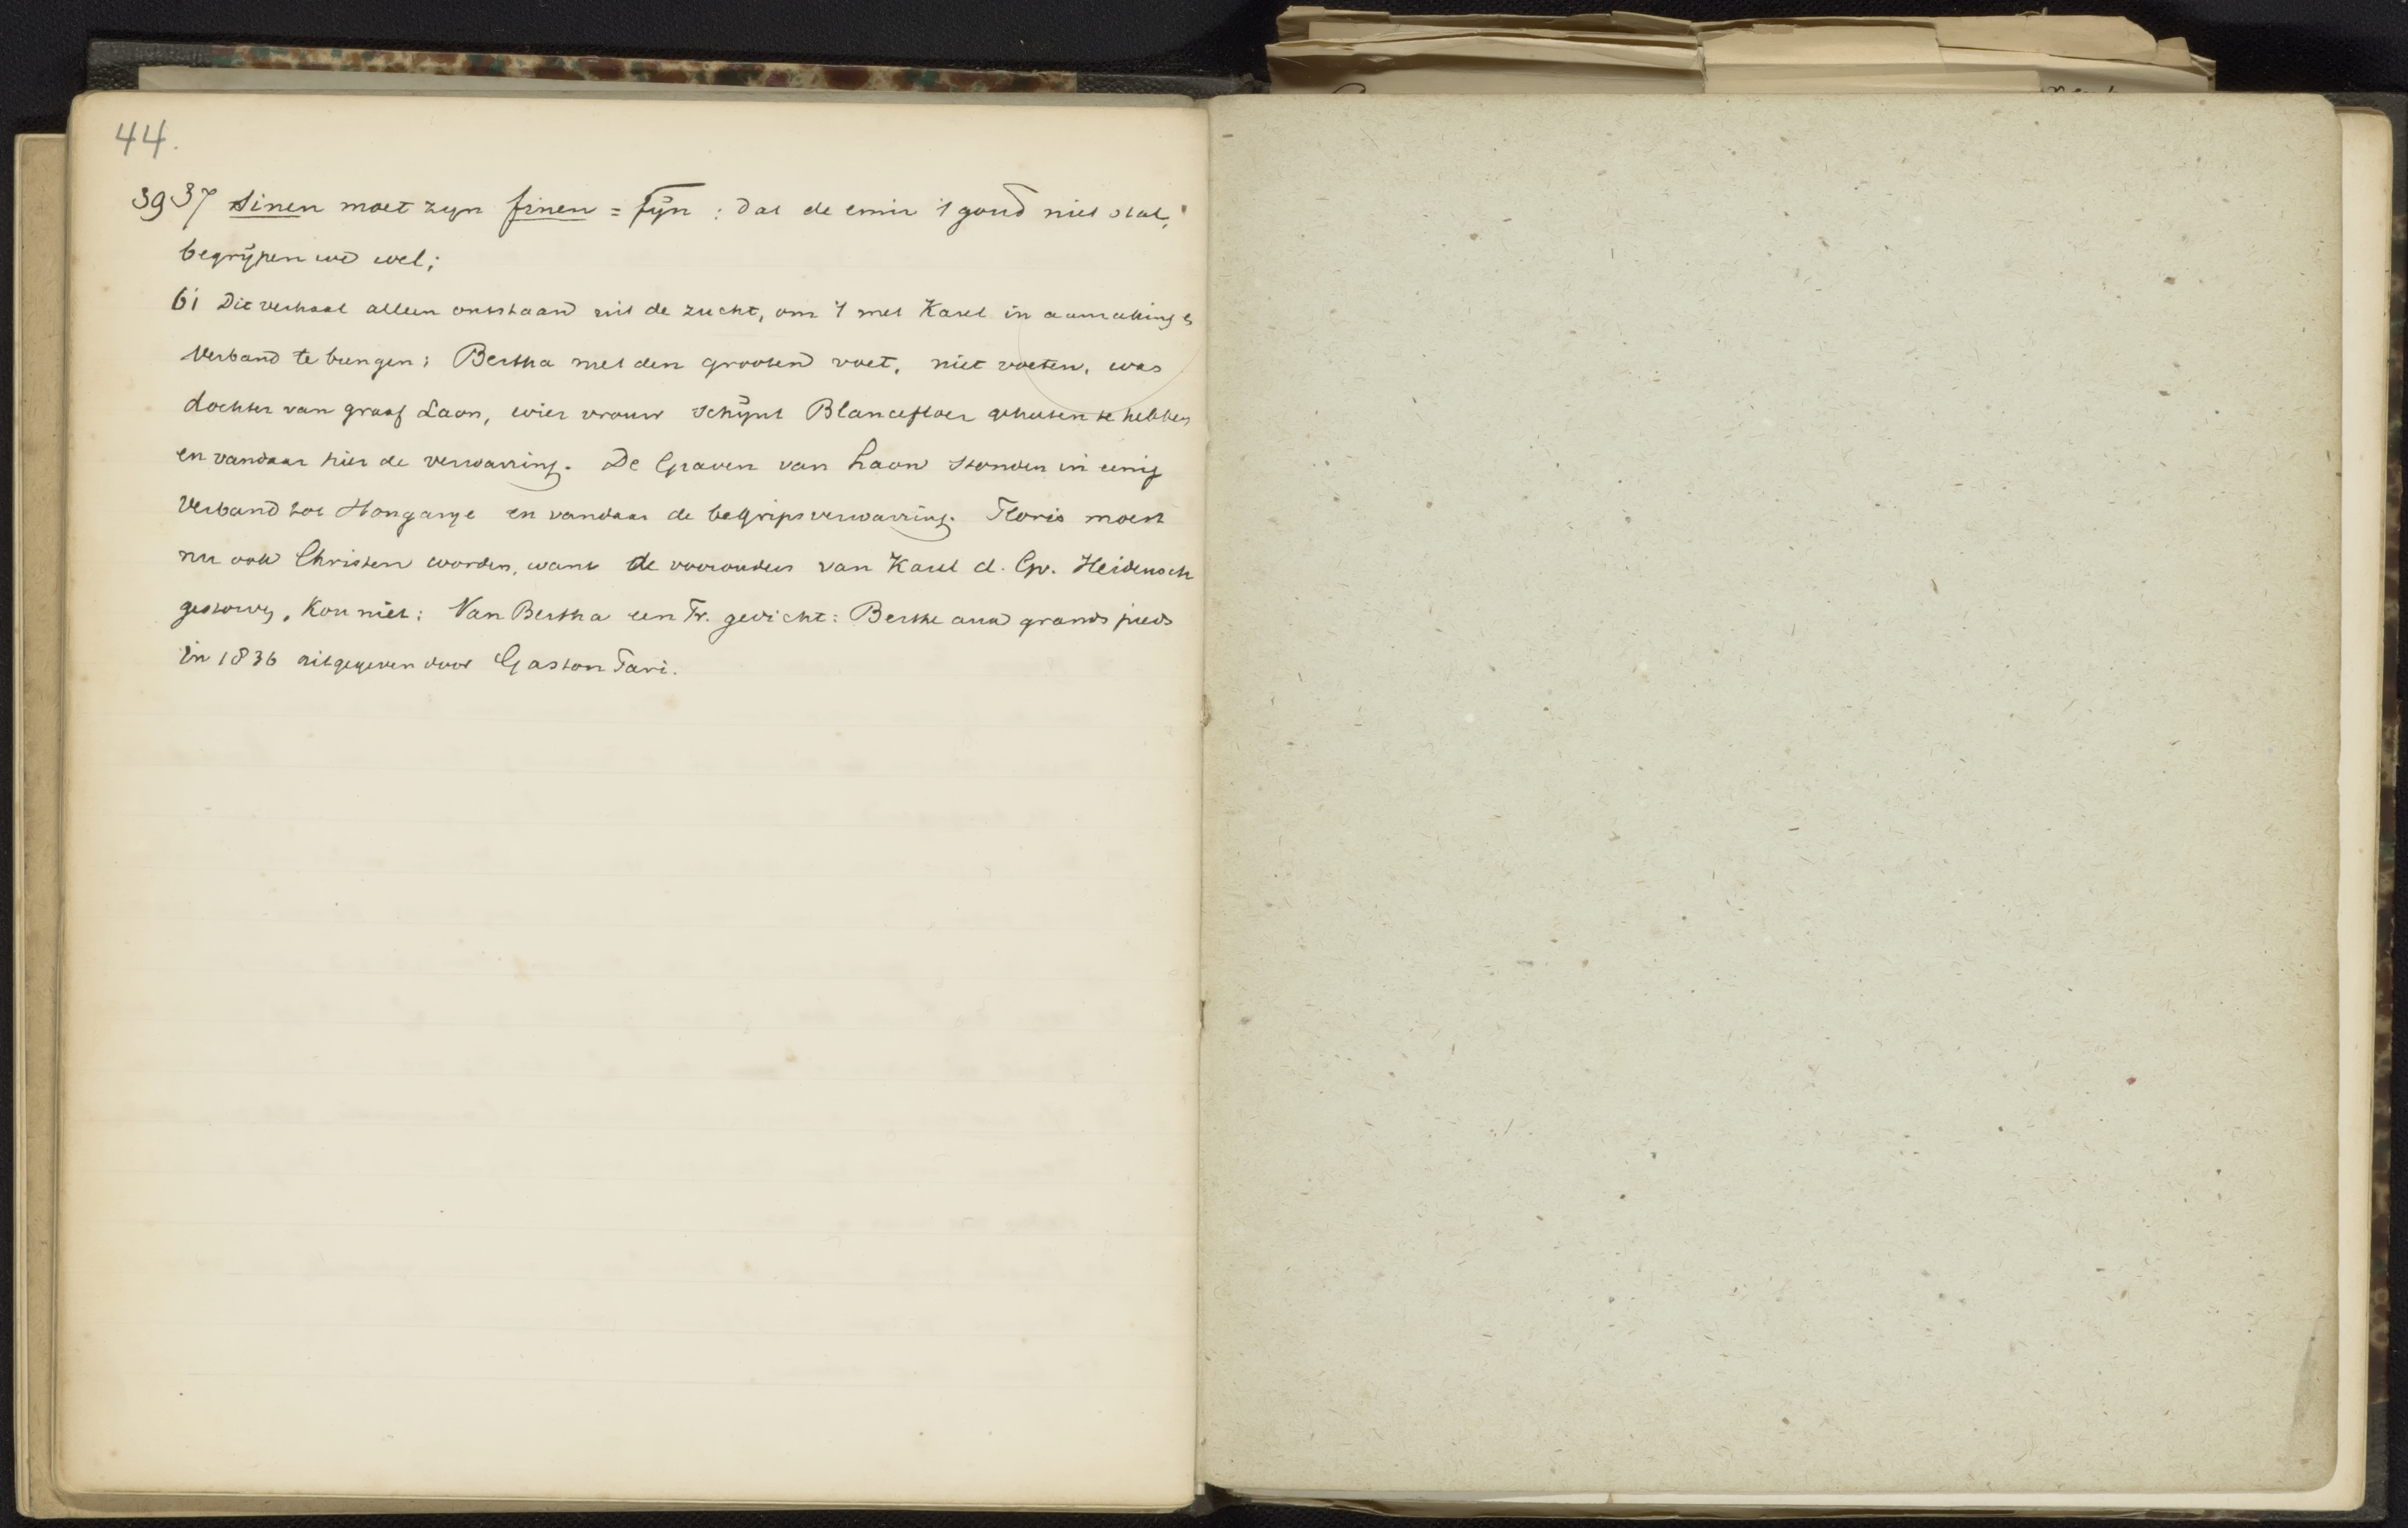 44.
3937 sinen moet zyn finen = fijn : dat de emir 't goud niet stal,
begrijpen we wel;
61 Dit verhaal alleen ontstaan uit de zucht, om 't met Karel in aanraking &
verband te brengen: Bertha met den grooten voet, niet voeten, was
dochter van graaf Laon, wier vrouw schijnt Blancefloer geheeten te hebben
en vandaar hier de verwarring. De Graven van Laon stonden in eenig
verband tot Hongarye en vandaar de begripsverwarring. Floris moest
nu ook Christen worden, want de voorouders van Karel d. Gr. Heidensch
gestorven, kon niet: Van Bertha een Fr. gedicht: Berthe aux grands pieds
in 1836 uitgegeven door Gaston Pari.